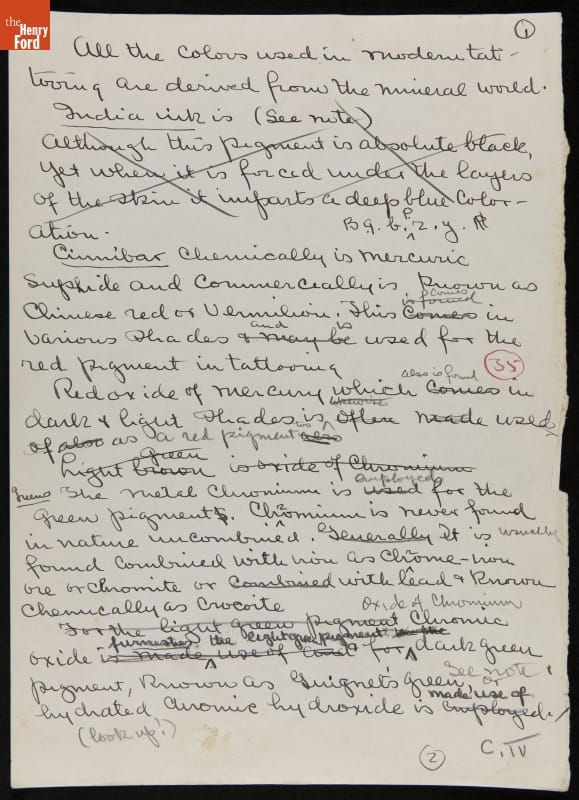 the
Henry
Ford
1
All the colors used in modern tat-
tooing are derived from the mineral world.
India ink is (See note)
Although this pigment is absolute black,
yet when it is forced under the layers
of the skin it imparts a deep blue color-
ation.
B. g. b. r. y.
Cinnibar chemically is mercuric
sulphide and commercially is known as
comes
is found
Chinese red or Vermilion. This comes in
and is
various shades & may be used for the
red pigment in tattooing
35
also is found
Red oxide of mercury which comes in
likewise
dark & light shades is often made used
of also as a red pigment too also
green
Light brown is oxide of Chromium
employed
Greens The metal Chromium is used for the
green pigments. Chromium is never found
in nature uncombined. Generally It is usually
found combined with iron as Chrome-iron
ore or chromite or combined with lead & known
chemically as crocoite
oxide of Chromium
For the light green pigment Chromic
furnishes the light green pigment
oxide is made use of and for dark green
See note
pigment, known as Guignet's green, or
made use of
hydrated chromic hydroxide is employed.
(look up!)
2
C. IV